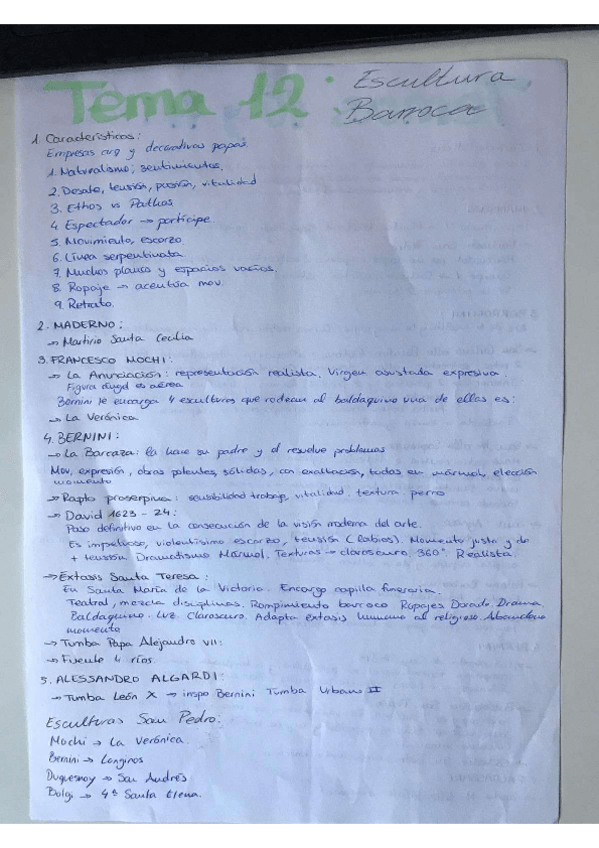 Tema 12: Escultura
Barroca
1. Características:
Empresas arq y decorativas papas.
1. Naturalismo; sentimientos.
2. Desate, tensión, pasión, vitalidad
3. Ethos vs Pathos
4. Espectador → partícipe
5. Movimiento, escorzo.
6. Línea serpentinata
7. Muchos planos y espacios vacíos.
8. Ropaje → acentúa mov.
9. Retrato.
2. MADERNO:
→ Martirio Santa Cecilia
3. FRANCESCO MOCHI:
→ La Anunciación: representación realista. Virgen asustada expresiva.
Figura ángel es aérea.
Bernini le encarga 4 esculturas que rodean al baldaquino una de ellas es:
→ La Verónica
4. BERNINI:
→ La Barcaza: la hace su padre y el resuelve problemas
Mov, expresión, obras potentes, sólidas, con exaltación, todas en mármol, elección
momento
→ Rapto proserpina: sensibilidad trabajo, vitalidad, textura perro
→ David 1623 - 24:
Paso definitivo en la consecución de la visión moderna del arte.
Es impetuoso, violentísimo escorzo, tensión (labios). Momento justo y de
+ tensión. Dramatismo Mármol. Texturas → claroscuro. 360º Realista.
→ Éxtasis Santa Teresa:
En Santa María de la Victoria. Encargo capilla funeraria.
Teatral, mezcla disciplinas. Rompimiento barroco Ropajes Dorado. Drama
Baldaquino. Luz. Claroscuro. Adapta éxtasis humano al religioso. Abandono
momento
→ Tumba Papa Alejandro VII:
→ Fuente 4 ríos.
5. ALESSANDRO ALGARDI:
→ Tumba León X → inspo Bernini Tumba Urbano II
Esculturas San Pedro:
Mochi → La Verónica.
Bernini → Longinos
Duquesnoy → San Andrés
Bolgi → 4º Santa Elena.